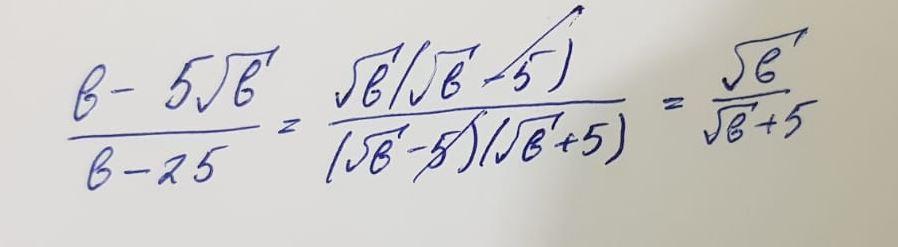 (в - 5√в)/(в - 25) = (√в(√в - 5))/((√в - 5)(√в + 5)) = √в/(√в + 5)